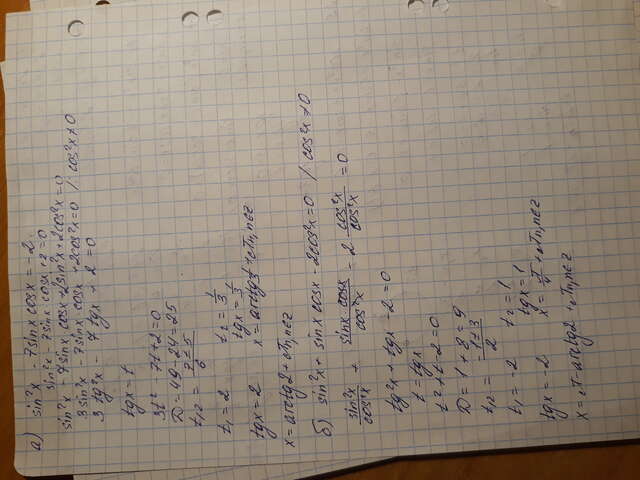 а) sin²x - 7sinx cosx = -2
sin²x - 7sinx cosx + 2 = 0
sin²x - 7sinx cosx + 2sin²x + 2cos²x = 0
3sin²x - 7sinx cosx + 2cos²x = 0 / cos²x ≠ 0
3 tg²x - 7 tgx + 2 = 0
tgx = t
3t² - 7t + 2 = 0
D = 49 - 24 = 25
t₁,₂ = (7 ± 5)/6
t₁ = 2 t₂ = 1/3
tgx = 2 tgx = 1/3
x = arctg2 + πn, n∈z x = arctg 1/3 + πn, n∈z
б) sin²x + sinx cosx - 2cos²x = 0 / cos²x ≠ 0
sin²x/cos²x + sinx cosx/cos²x - 2 cos²x/cos²x = 0
tg²x + tgx - 2 = 0
t = tgx
t² + t - 2 = 0
D = 1 + 8 = 9
t₁,₂ = (-1 ± 3)/2
t₁ = -2 t₂ = 1
tgx = -2 tgx = 1
x = π/4 + πn, n∈z
x = π - arctg2 + πn, n∈z